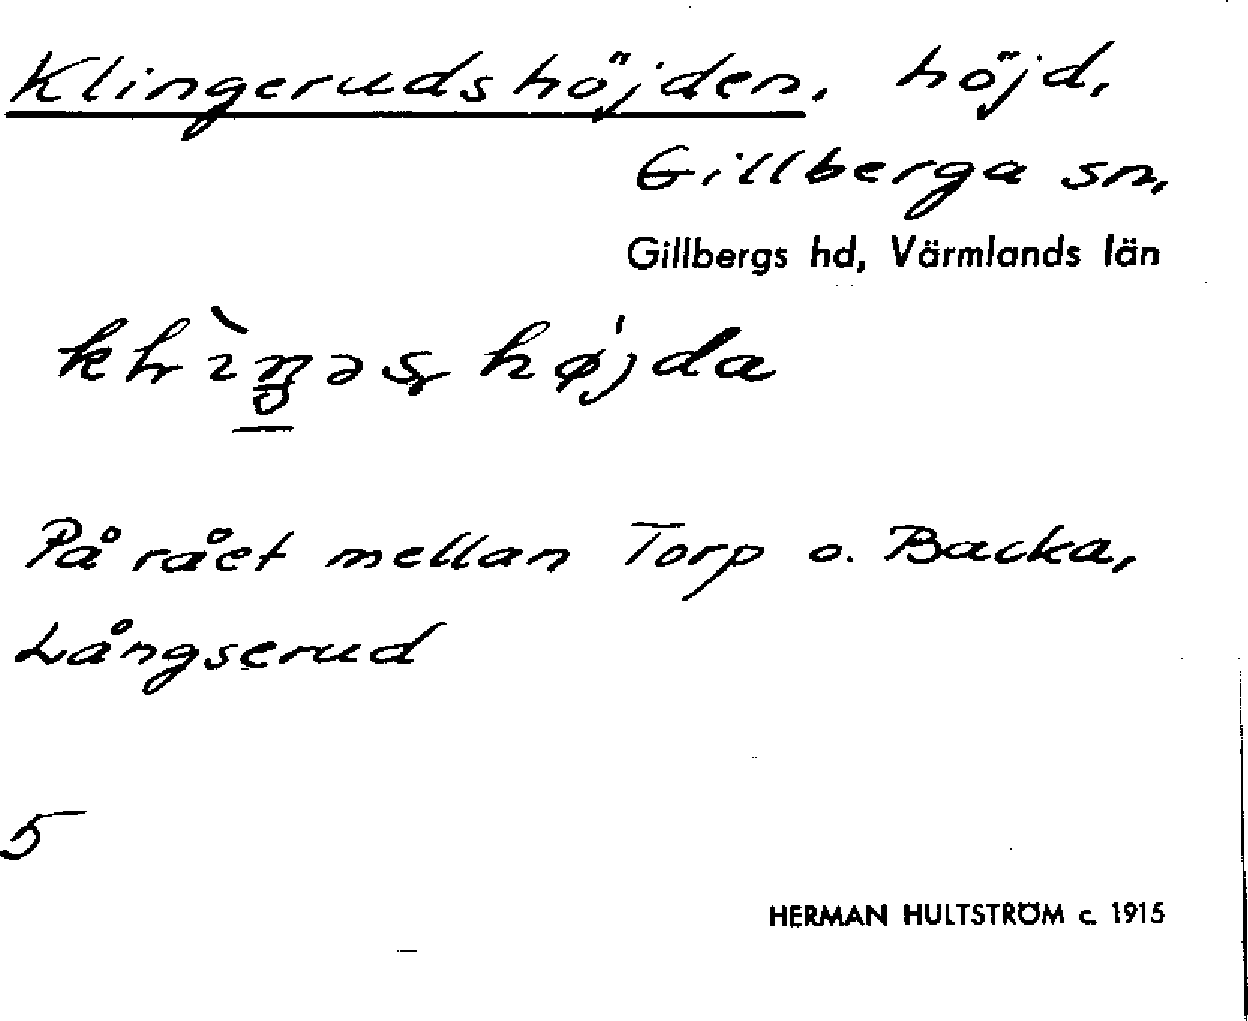 Klingerudshöjden, höjd,
Gillberga sn,
Gillbergs hd, Värmlands län
På rået mellan Torp o. Backa,
Långserud
5
HERMAN HULTSTRÖM c. 1915